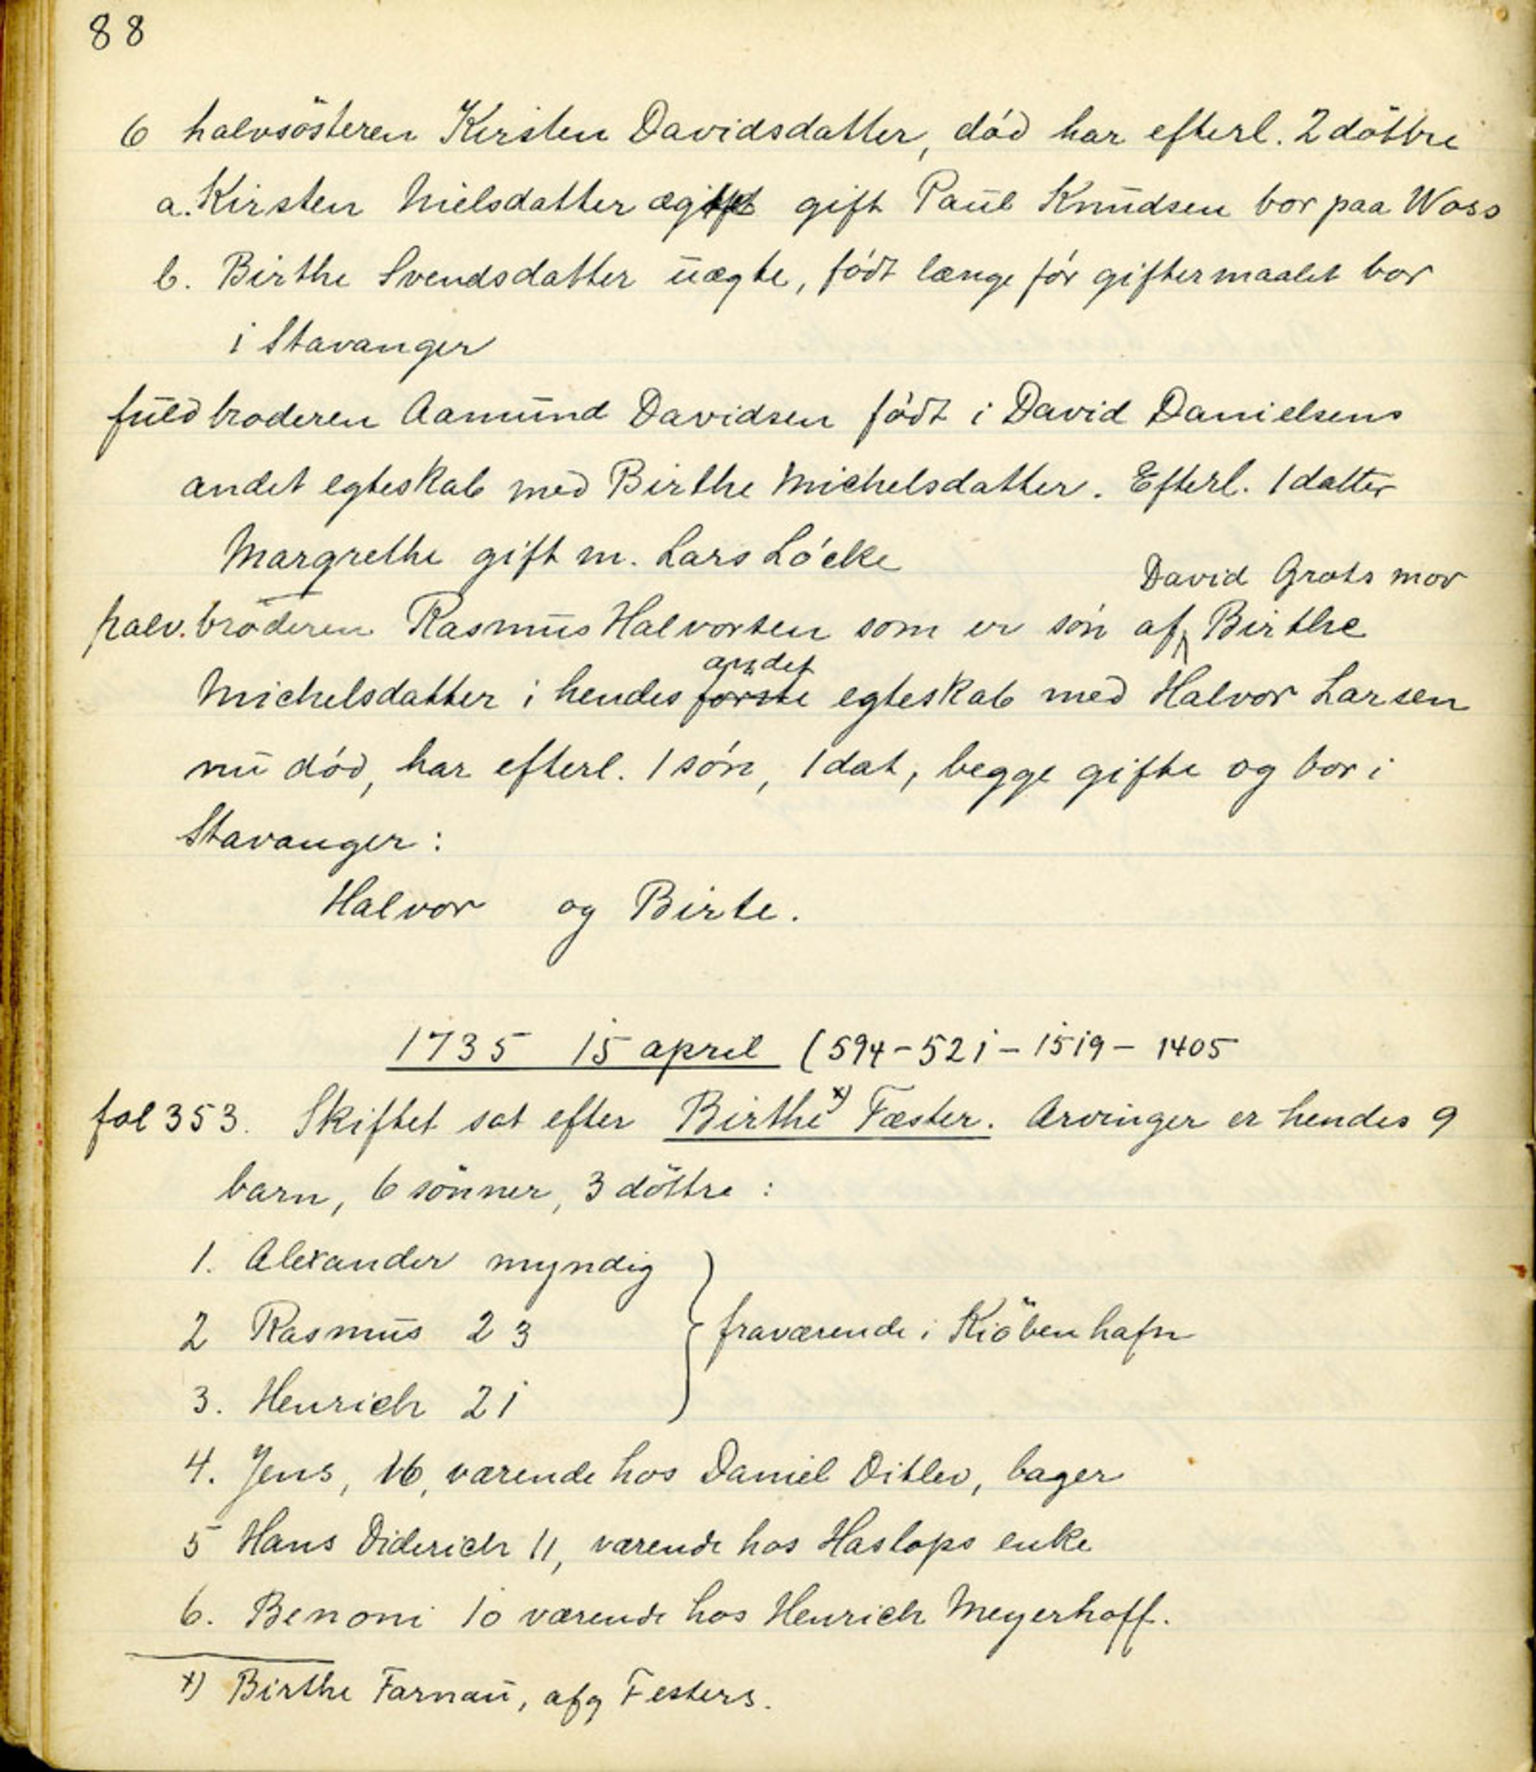 88
6 halvsösteren Kirsten Davidsdatter, död har efterl. 2 döttre
a. Kirsten Nielsdatter gift Paul Knudsen bor paa Woss
b. Birthe Svendsdatter uægte, födt længe för giftermaalet bor
i Stavanger
fuldbroderen Aamund Davidsen födt i David Danielsens
andet egteskab med Birthe Michelsdatter. Efterl. 1 datter
Margrethe gift m. Lars Löcke
David Grots mor
halv.broderen Rasmus Halvorsen som er sön af Birthe
andet
Michelsdatter i hendes förste egteskab med Halvor Larsen
nu död, har efterl. 1 sön, 1 dat, begge gifte og bor i
Stavanger:
Halvor og Birte.
1735 15 april (594-521-1519-1405
fol 353. Skiftet sat efter Birthe x) Fæster. Arvinger er hendes 9
barn, 6 sönner, 3 döttre:
1. Alexander myndig
2 Rasmus 23 } fraværende i Kiöbenhafn
3. Henrich 21
4. Jens, 16, værende hos Daniel Ditlev, bager
5 Hans Diderich 11, værende hos Haslops enke
6. Benoni 10 værende hos Henrich Meyerhoff.
x) Birthe Farnau, afg Festers.